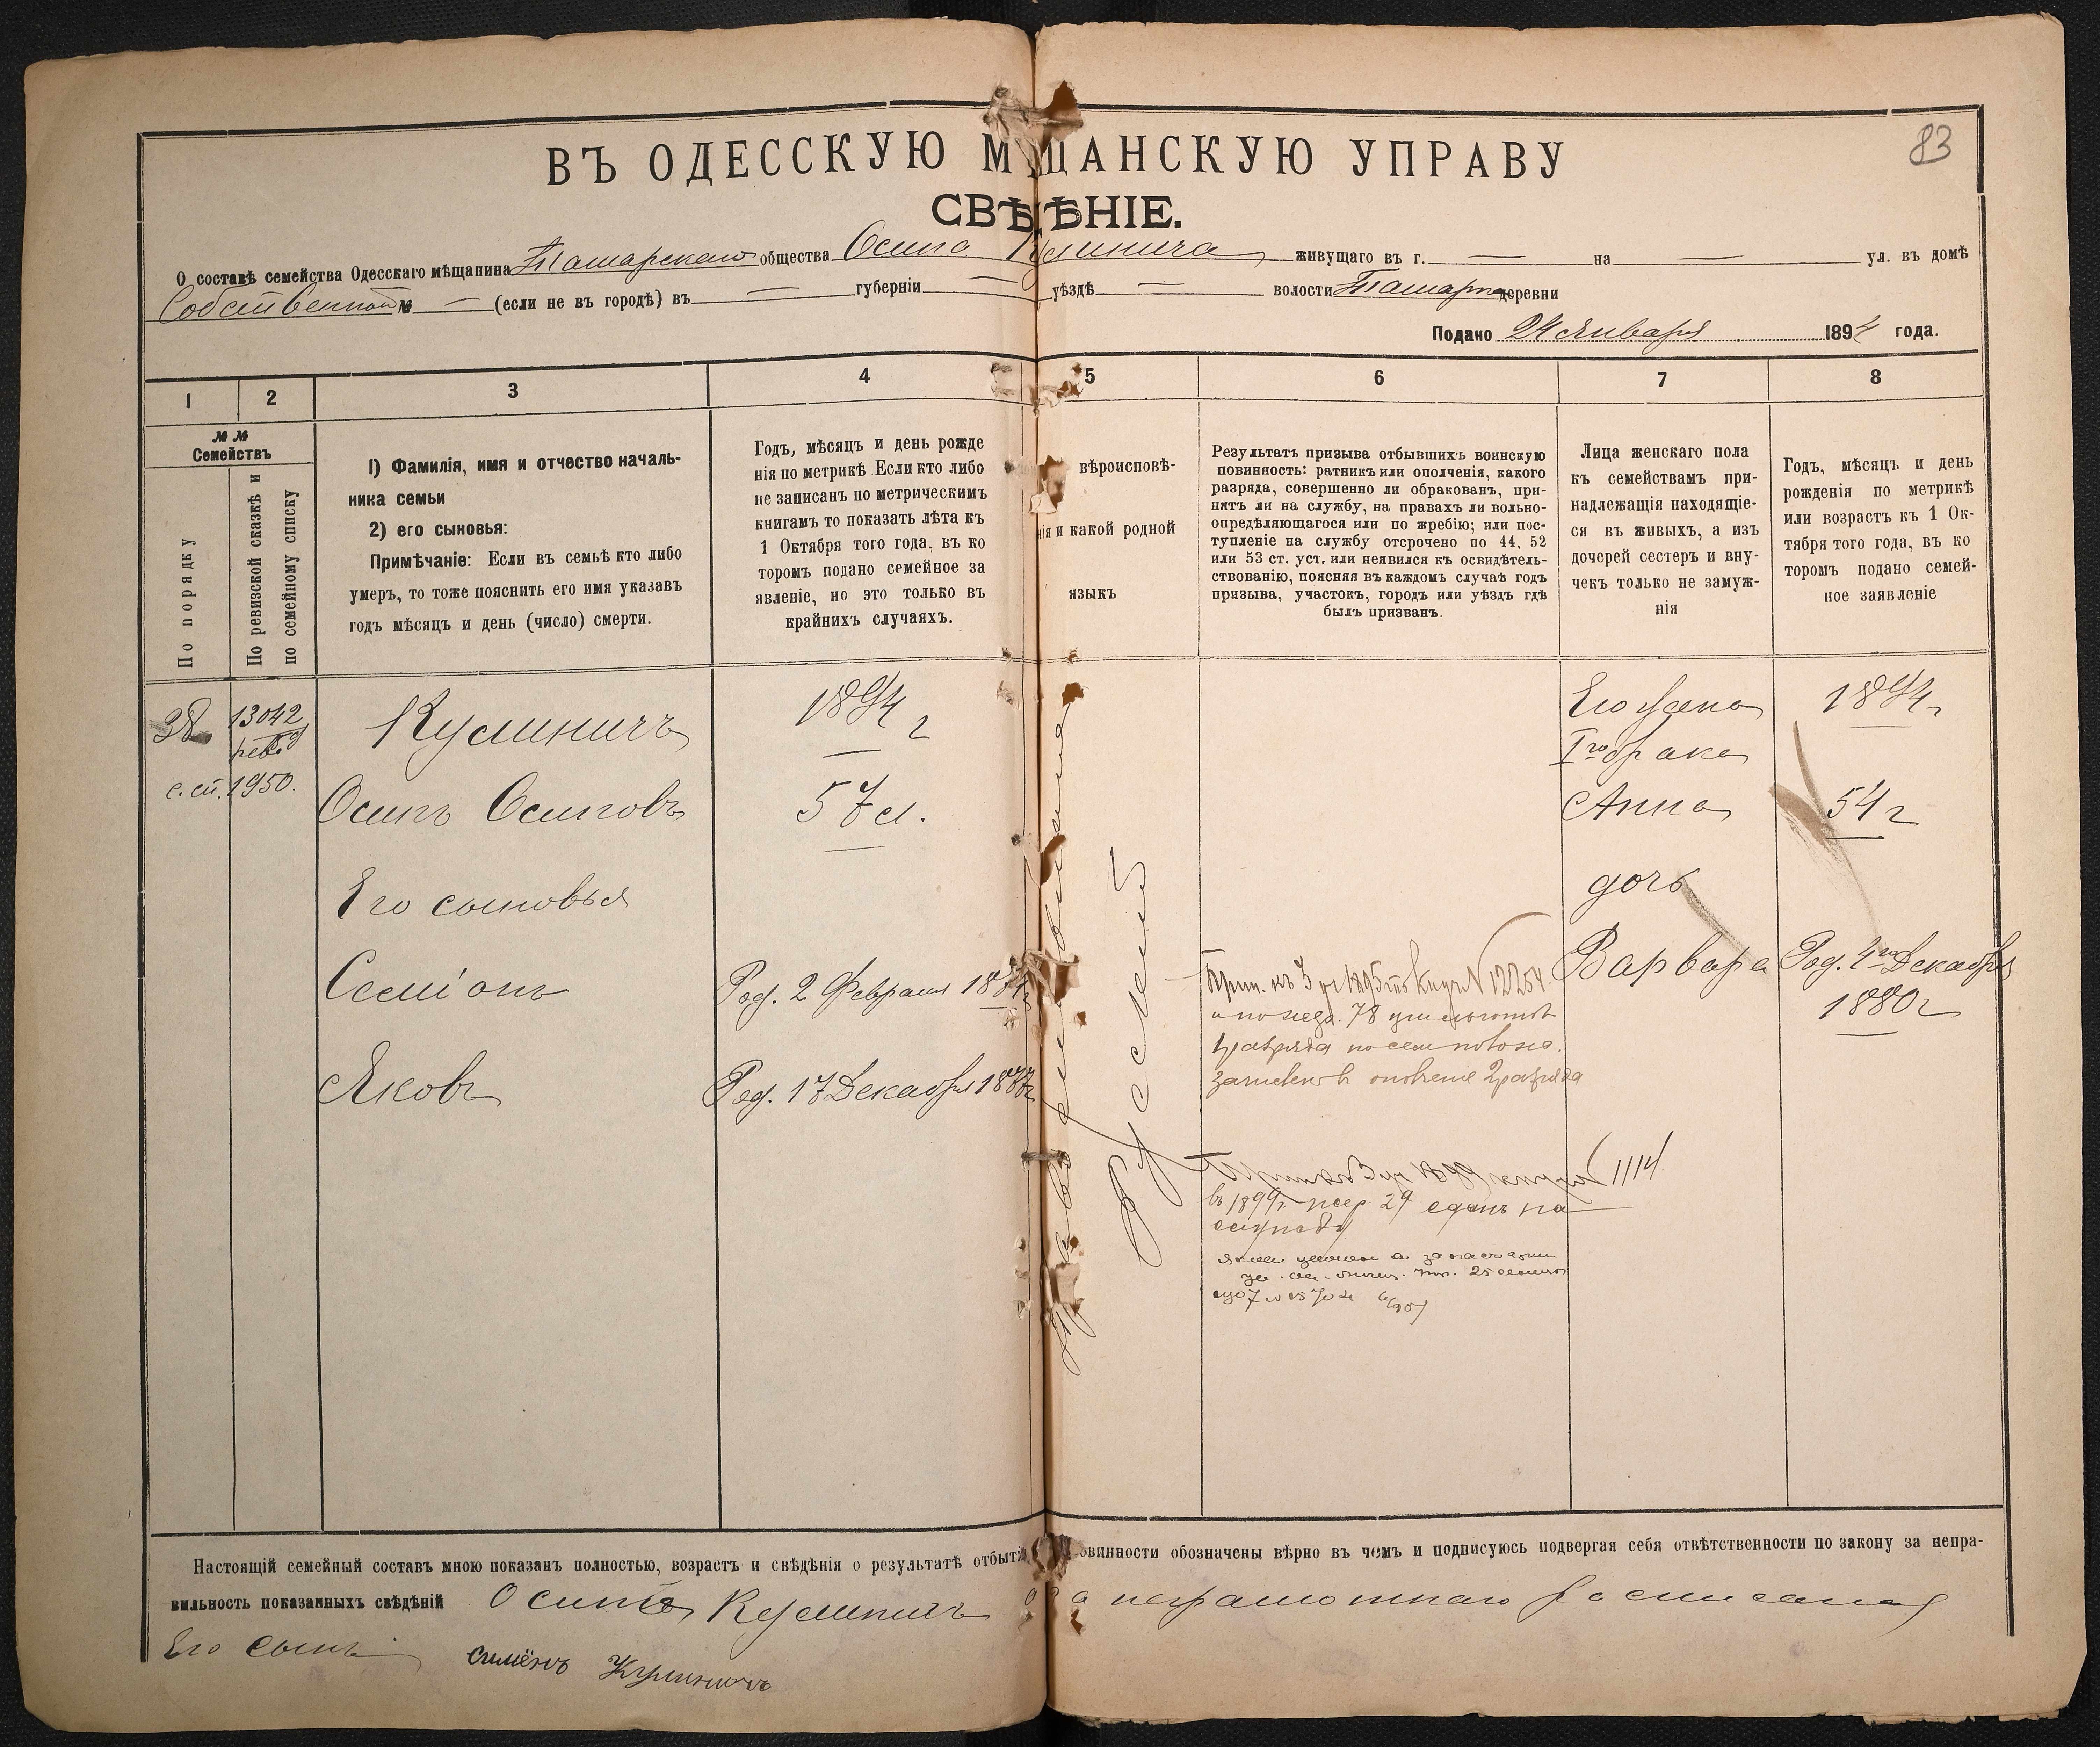 83
ВЪ ОДЕССКУЮ МѢЩАНСКУЮ УПРАВУ
СВѢДѢНІЕ.
О составѣ семейства Одесскаго мѣщанина Татарскаго общества Осипа Кулинича живущаго въ г. — на — ул. въ домѣ
Собственном № — (если не въ городѣ) въ — губерніи — уѣздѣ — волости деревни
Подано 24 Января 1894 года.
1 2 3 4 5 6 7 8
№ №
Семействъ
По порядку
По ревизской сказкѣ и
по семейному списку
1) Фамилія, имя и отчество началь-
ника семьи
2) его сыновья:
Примѣчаніе: Если въ семьѣ кто либо
умеръ, то тоже пояснить его имя указавъ
годъ мѣсяцъ и день (число) смерти.
Годъ, мѣсяцъ и день рожде
нія по метрикѣ Если кто либо
не записанъ по метрическимъ
книгамъ то показать лѣта къ
1 Октября того года, въ ко
торомъ подано семейное за
явленіе, но это только въ
крайнихъ случаяхъ.
вѣроисповѣ-
нія и какой родной
языкъ
Результатъ призыва отбывшихъ воинскую
повинность: ратникъ или ополченія, какого
разряда, совершенно ли обракованъ, при-
нятъ ли на службу, на правахъ ли вольно-
опредѣляющагося или по жребію; или пос-
тупленіе на службу отсрочено по 44, 52
или 53 ст. уст, или неявился къ освидѣтель-
ствованію, поясняя въ каждомъ случаѣ годъ
призыва, участокъ, городъ или уѣздъ гдѣ
былъ призванъ.
Лица женскаго пола
къ семействамъ при-
надлежащія находящіе-
ся въ живыхъ, а изъ
дочерей сестеръ и вну-
чекъ только не замуж-
нія
Годъ, мѣсяцъ и день
рожденія по метрикѣ
или возрастъ къ 1 Ок-
тября того года, въ ко
торомъ подано семей-
ное заявленіе
38
13042
рев.
с. сп. 1950.
Кулиничъ
1894 г
Осипъ Осиповъ
57 л.
Его сыновья
Семіонъ
Род. 2 Февраля
Яковъ
Род. 17 Декабря
Православнаго
Русский
Его жена
Iго брака
Анна
дочь
Варвара
1894 г
54 г
Род. 4го Декабря
1880 г
№ 12254
разряда
2 разряда
1114
въ 1899 г. 29
Настоящій семейный составъ мною показанъ полностью, возрастъ и свѣдѣнія о результатѣ отбытія повинности обозначены вѣрно въ чемъ и подписуюсь подвергая себя отвѣтственности по закону за непра-
вильность показанныхъ свѣдѣній Осипъ Кулиничъ а за неграмотнаго росписался
Его сынъ Симёнъ Кулиничъ